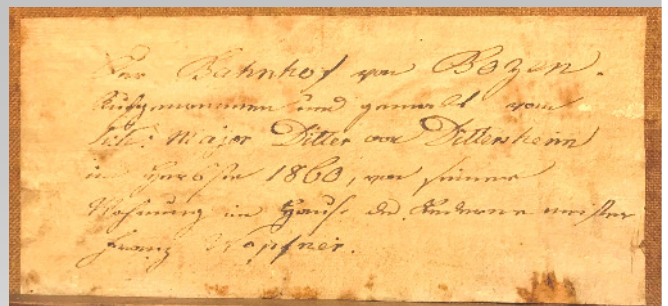 Der Bahnhof von Bozen.
Aufgenommen und gemalt vom
Major Ditter von Dittersheim
im Herbste 1860, von seiner
Wohnung im Hause des meister
Franz Kapfner.